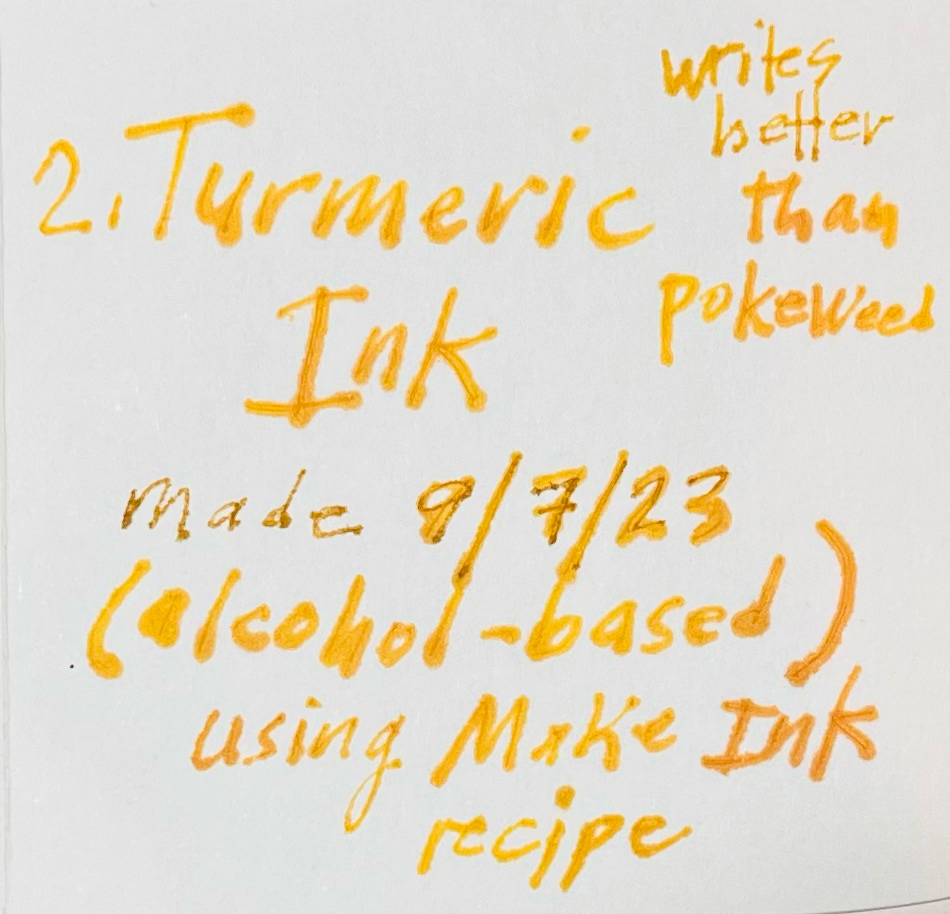 2. Turmeric
Ink
writes
better
than
pokeweed
Made 9/7/23
(alcohol-based)
using Make Ink
recipe